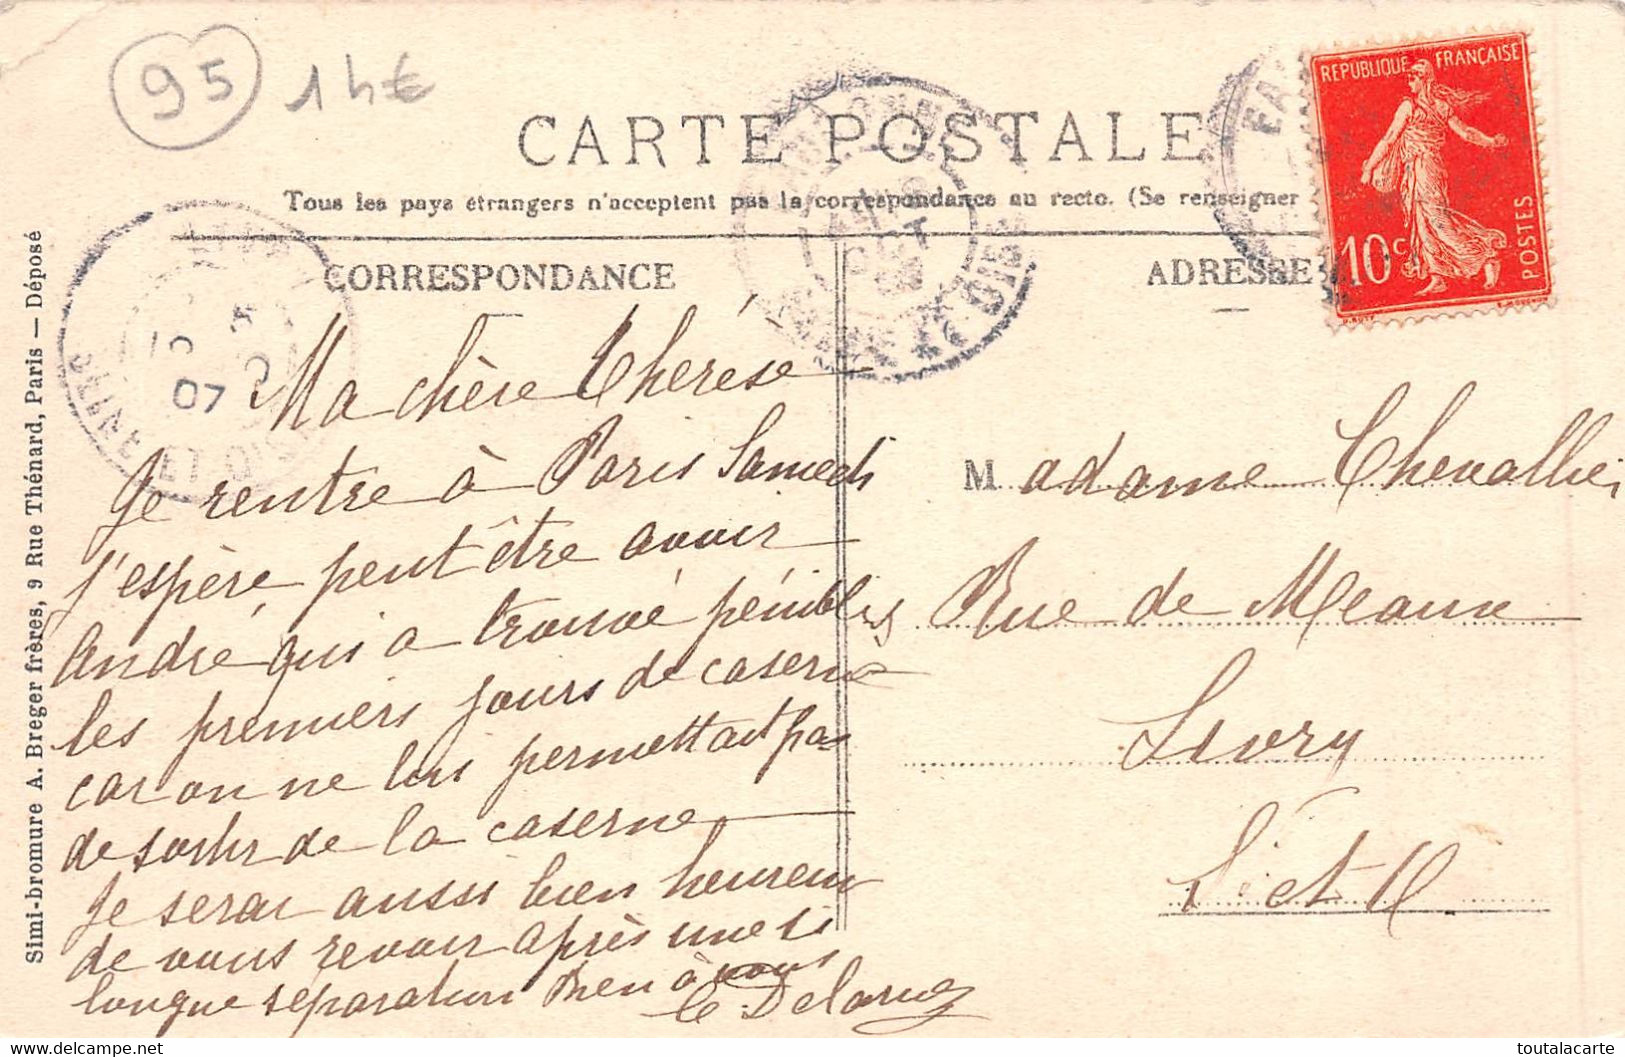 95
14€
CARTE POSTALE
Tous les pays étrangers n'acceptent pas la correspondance au recto. (Se renseigner
RÉPUBLIQUE FRANÇAISE
10c
POSTES
CORRESPONDANCE
ADRESSE
SEINE ET OISE
07
Simi-bromure A. Breger frères, 9 Rue Thénard, Paris — Déposé
Ma chère Thérèse
Je rentre à Paris Samedi
j'espère peut être avoir
André qui a trouvé pénibles
les premiers jours de caserne
car on ne lui permettait pas
de sortir de la caserne
Je serai aussi bien heureux
de vous revoir après une si
longue séparation Bien à vous
C Delarue
Madame Chevallier
Rue de Meaux
Livry
S et O
toutalacarte